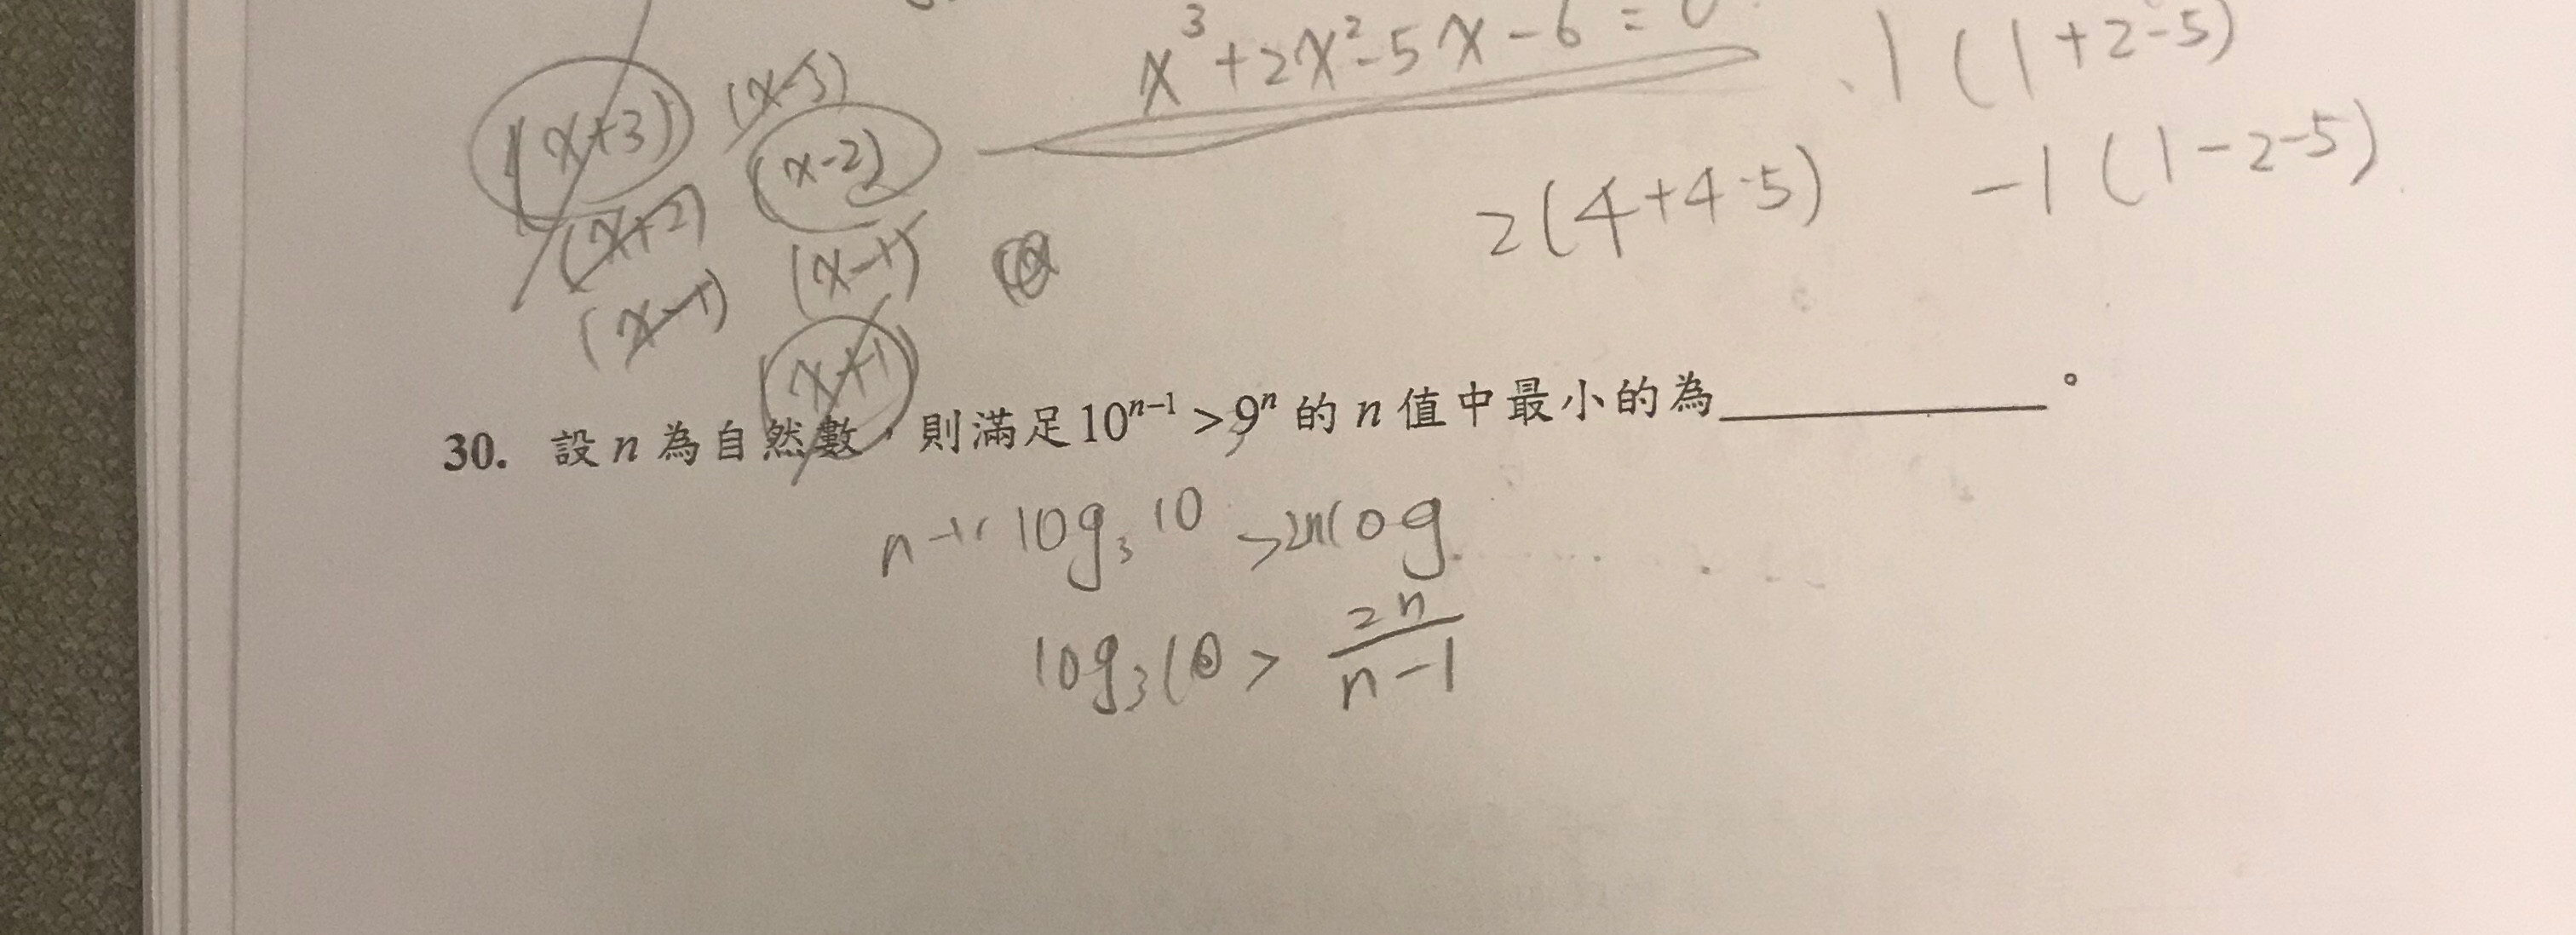 x³+2x²-5x-6=0
1(1+2-5)
(x+3) (x-3)
(x-2)
2(4+4-5) -1(1-2-5)
(x+2) (x-1)
(x-1)
(x+1)
30. 設 n 為自然數，則滿足 10ⁿ⁻¹ > 9ⁿ 的 n 值中最小的為__________。
n-1 log₃10 >2nlog
log₃10 > 2n/n-1